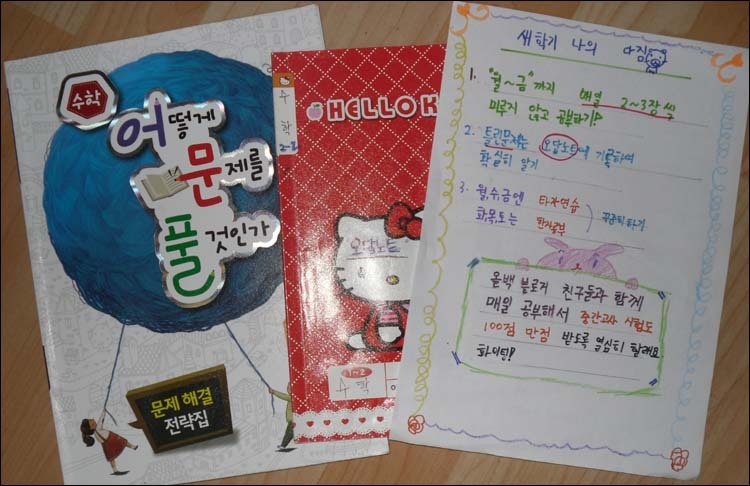 수학
어떻게
문제를
풀 것인가
문제 해결
전략집
수
학
2-2
HELLO K
오답노트
1~2
수학
새학기 나의 다짐
1. "월~금"까지 매일 2~3장씩
미루지 않고 공부하기!
2. 틀린문제는 오답노트에 기록하여
확실히 알기
3. 월,수,금엔 타자연습
화,목,토는 한자공부
꾸준히 하기
올백 블로거 친구들과 함께
매일 공부해서 중간고사 시험도
100점 만점 받도록 열심히 할래요
화이팅!